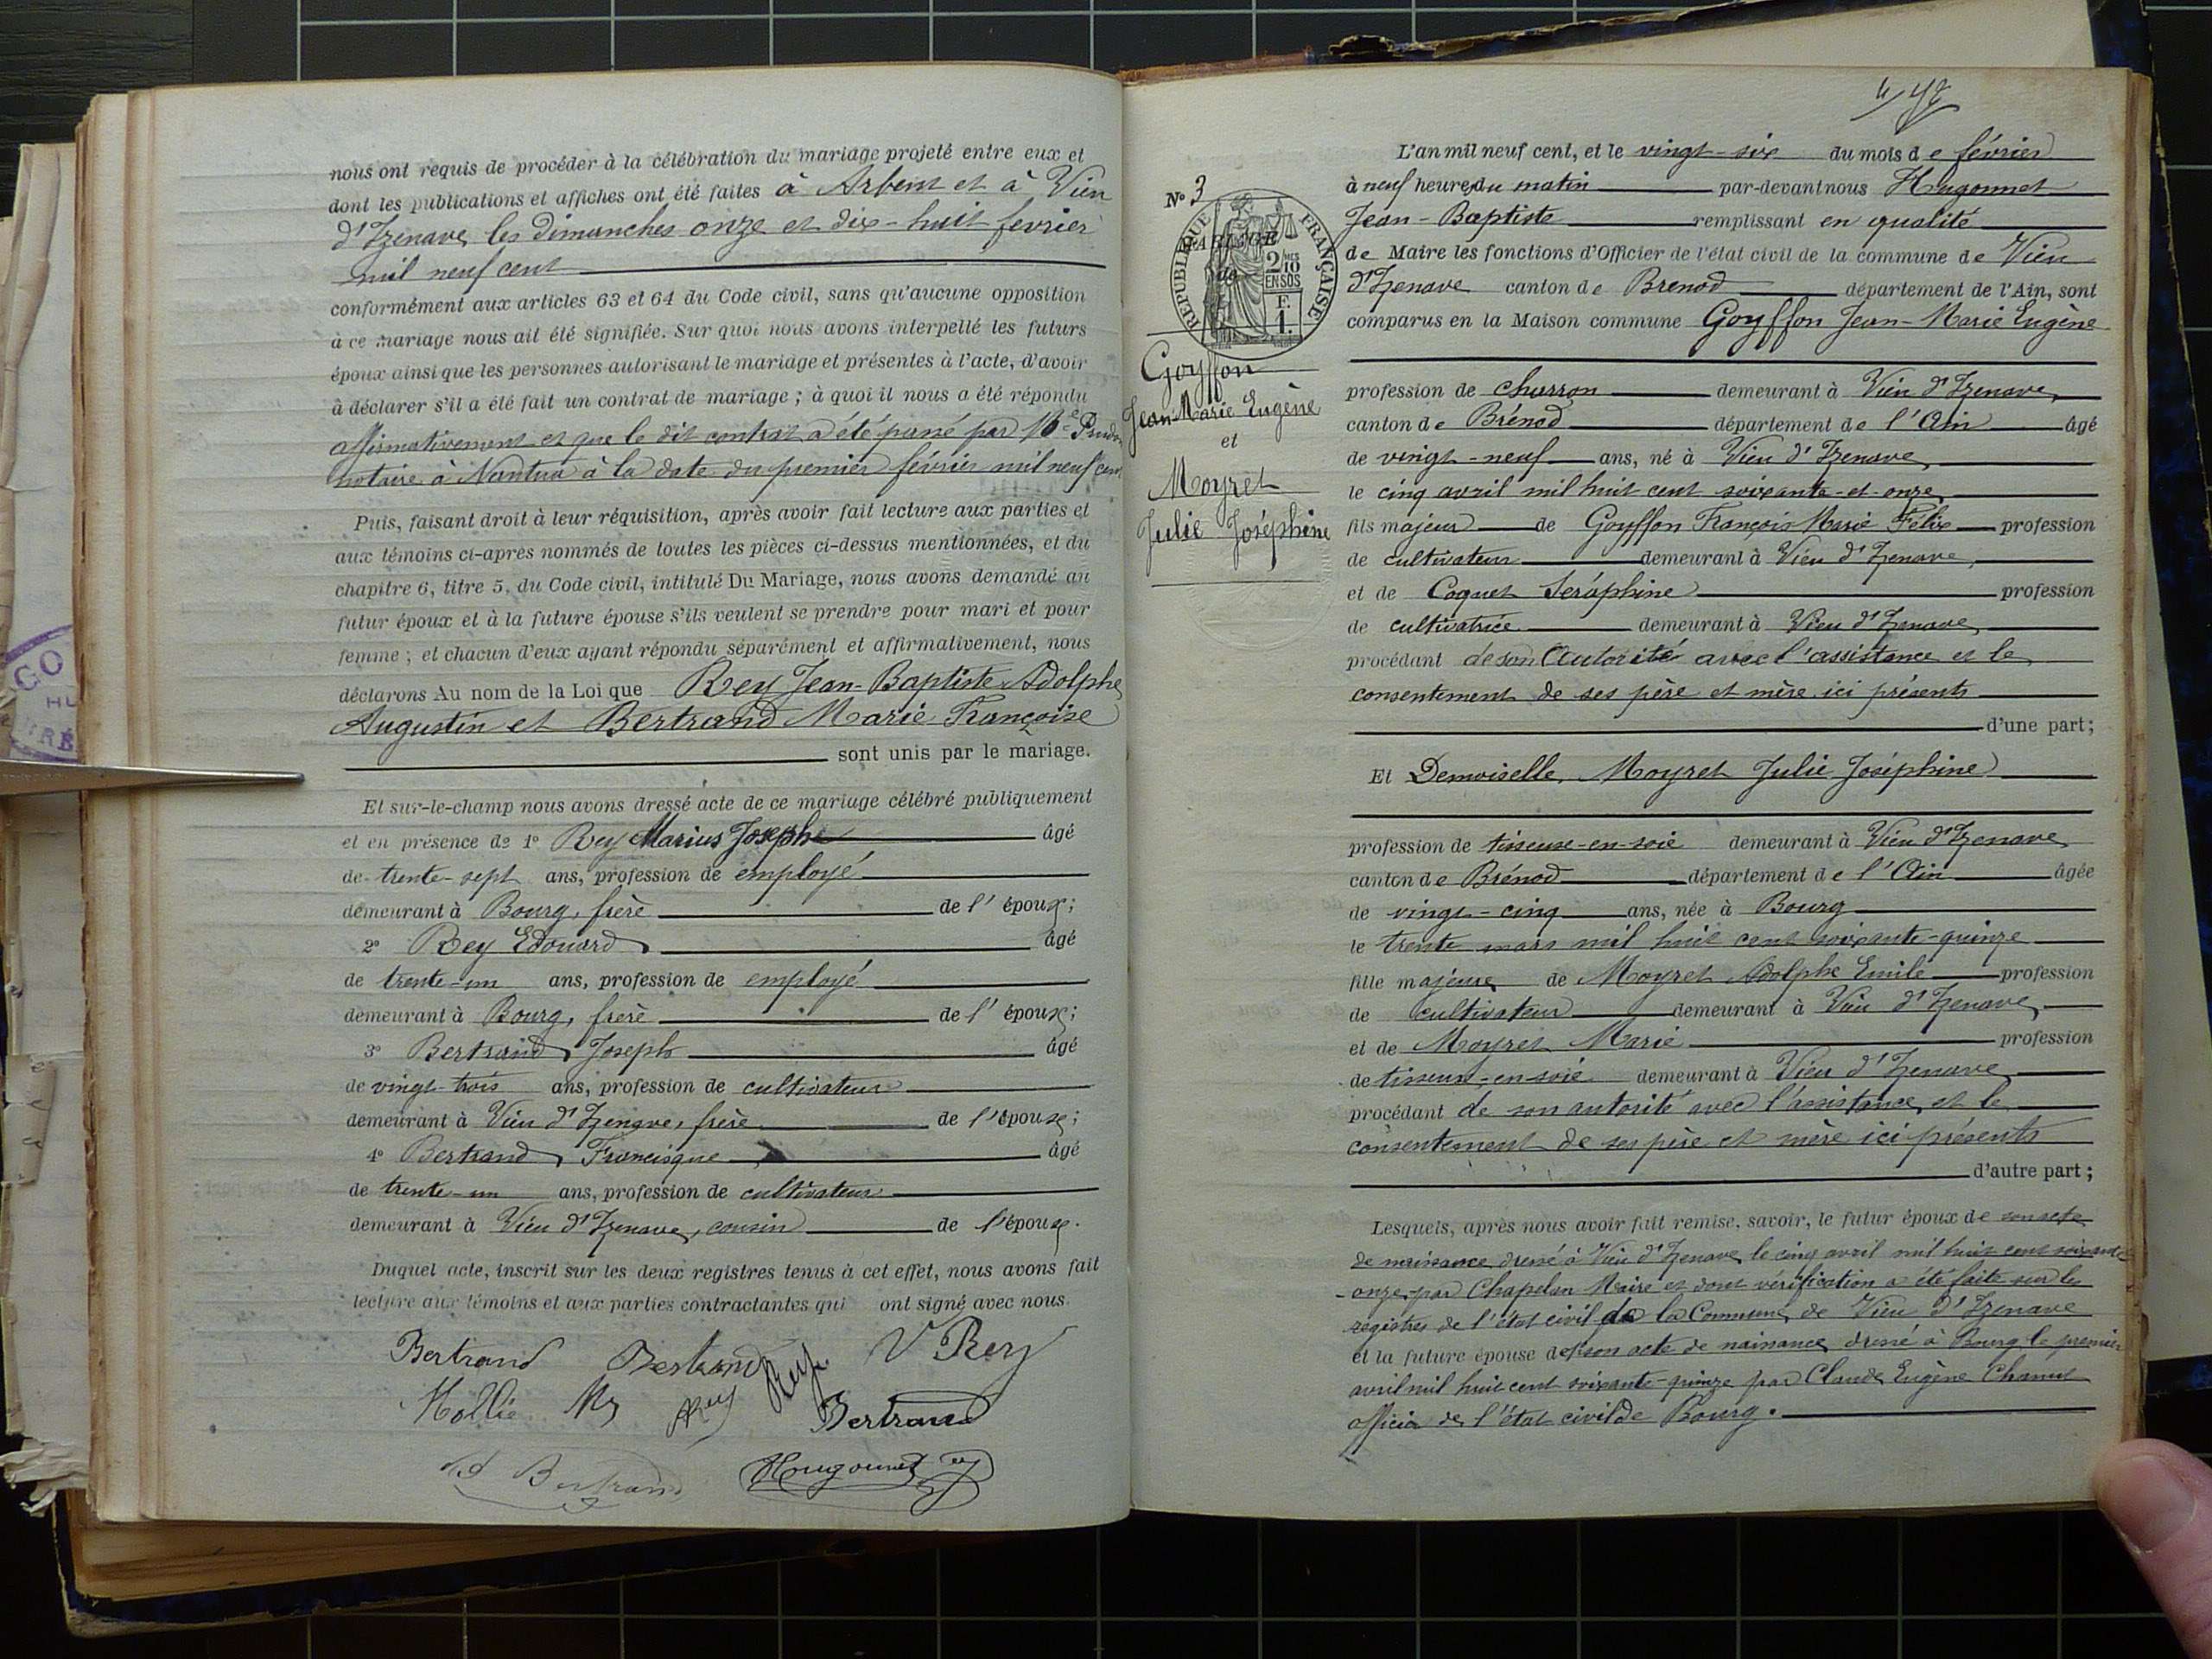 nous ont requis de procéder à la célébration du mariage projeté entre eux et
dont les publications et affiches ont été faites à Arbent et à Vieu
d'Izenave les dimanches onze et dix-huit fevrier
mil neuf cent
conformément aux articles 63 et 64 du Code civil, sans qu'aucune opposition
à ce mariage nous ait été signifiée. Sur quoi nous avons interpellé les futurs
époux ainsi que les personnes autorisant le mariage et présentes à l'acte, d'avoir
à déclarer s'il a été fait un contrat de mariage ; à quoi il nous a été répondu
affirmativement et que le dit contrat a été passé par Me
notaire à Nantua à la date du premier février mil neuf cent
Puis, faisant droit à leur réquisition, après avoir fait lecture aux parties et
aux témoins ci-après nommés de toutes les pièces ci-dessus mentionnées, et du
chapitre 6, titre 5, du Code civil, intitulé Du Mariage, nous avons demandé au
futur époux et à la future épouse s'ils veulent se prendre pour mari et pour
femme ; et chacun d'eux ayant répondu séparément et affirmativement, nous
déclarons Au nom de la Loi que Rey Jean-Baptiste Adolphe
Augustin et Bertrand Marie Françoise
sont unis par le mariage.
Et sur-le-champ nous avons dressé acte de ce mariage célébré publiquement
et en présence de 1° Rey Marius Joseph âgé
de trente-sept ans, profession de employé
demeurant à Bourg, frère de l'époux ;
2° Rey Edouard âgé
de trente-un ans, profession de employé
demeurant à Bourg, frère de l'époux ;
3° Bertrand Joseph âgé
de vingt-trois ans, profession de cultivateur
demeurant à Vieu d'Izenave, frère de l'épouse ;
4° Bertrand Francisque âgé
de trente-un ans, profession de cultivateur
demeurant à Vieu d'Izenave, cousin de l'épouse.
Duquel acte, inscrit sur les deux registres tenus à cet effet, nous avons fait
lecture aux témoins et aux parties contractantes qui ont signé avec nous.
Bertrand Bertrand Rey V Rey
Rey Bertrand
Bertrand Hugonnet
N° 3
RÉPUBLIQUE FRANÇAISE
MARIAGE
de
2/10 EN SUS
F. 1.
Goyffon
Jean-Marie Eugène
et
Moyret
Julie Joséphine
L'an mil neuf cent, et le vingt-six du mois de février
à neuf heures du matin par-devant nous Hugonnet
Jean-Baptiste remplissant en qualité
de Maire les fonctions d'Officier de l'état civil de la commune de Vieu
d'Izenave canton de Brenod département de l'Ain, sont
comparus en la Maison commune Goyffon Jean-Marie Eugène
profession de charron demeurant à Vieu d'Izenave
canton de Brénod département de l'Ain âgé
de vingt-neuf ans, né à Vieu d'Izenave
le cinq avril mil huit cent soixante-et-onze
fils majeur de Goyffon François Marie Félix profession
de cultivateur demeurant à Vieu d'Izenave
et de Coquet Séraphine profession
de cultivatrice demeurant à Vieu d'Izenave
procédant de son autorité avec l'assistance et le
consentement de ses père et mère ici présents
d'une part ;
Et Demoiselle Moyret Julie Joséphine
profession de tisseuse-en-soie demeurant à Vieu d'Izenave
canton de Brénod département de l'Ain âgée
de vingt-cinq ans, née à Bourg
le trente mars mil huit cent soixante-quinze
fille majeure de Moyret Adolphe Emile profession
de cultivateur demeurant à Vieu d'Izenave
et de Moyret Marie profession
de tisseuse-en-soie demeurant à Vieu d'Izenave
procédant de son autorité avec l'assistance et le
consentement de ses père et mère ici présents
d'autre part ;
Lesquels, après nous avoir fait remise, savoir, le futur époux de son acte
de naissance dressé à Vieu d'Izenave le cinq avril mil huit cent soixante
-onze par Chapelan Maire et dont vérification a été faite sur les
registres de l'état civil de la Commune de Vieu d'Izenave
et la future épouse de son acte de naissance dressé à Bourg le premier
avril mil huit cent soixante-quinze par Claude Eugène
officier de l'état civil de Bourg.